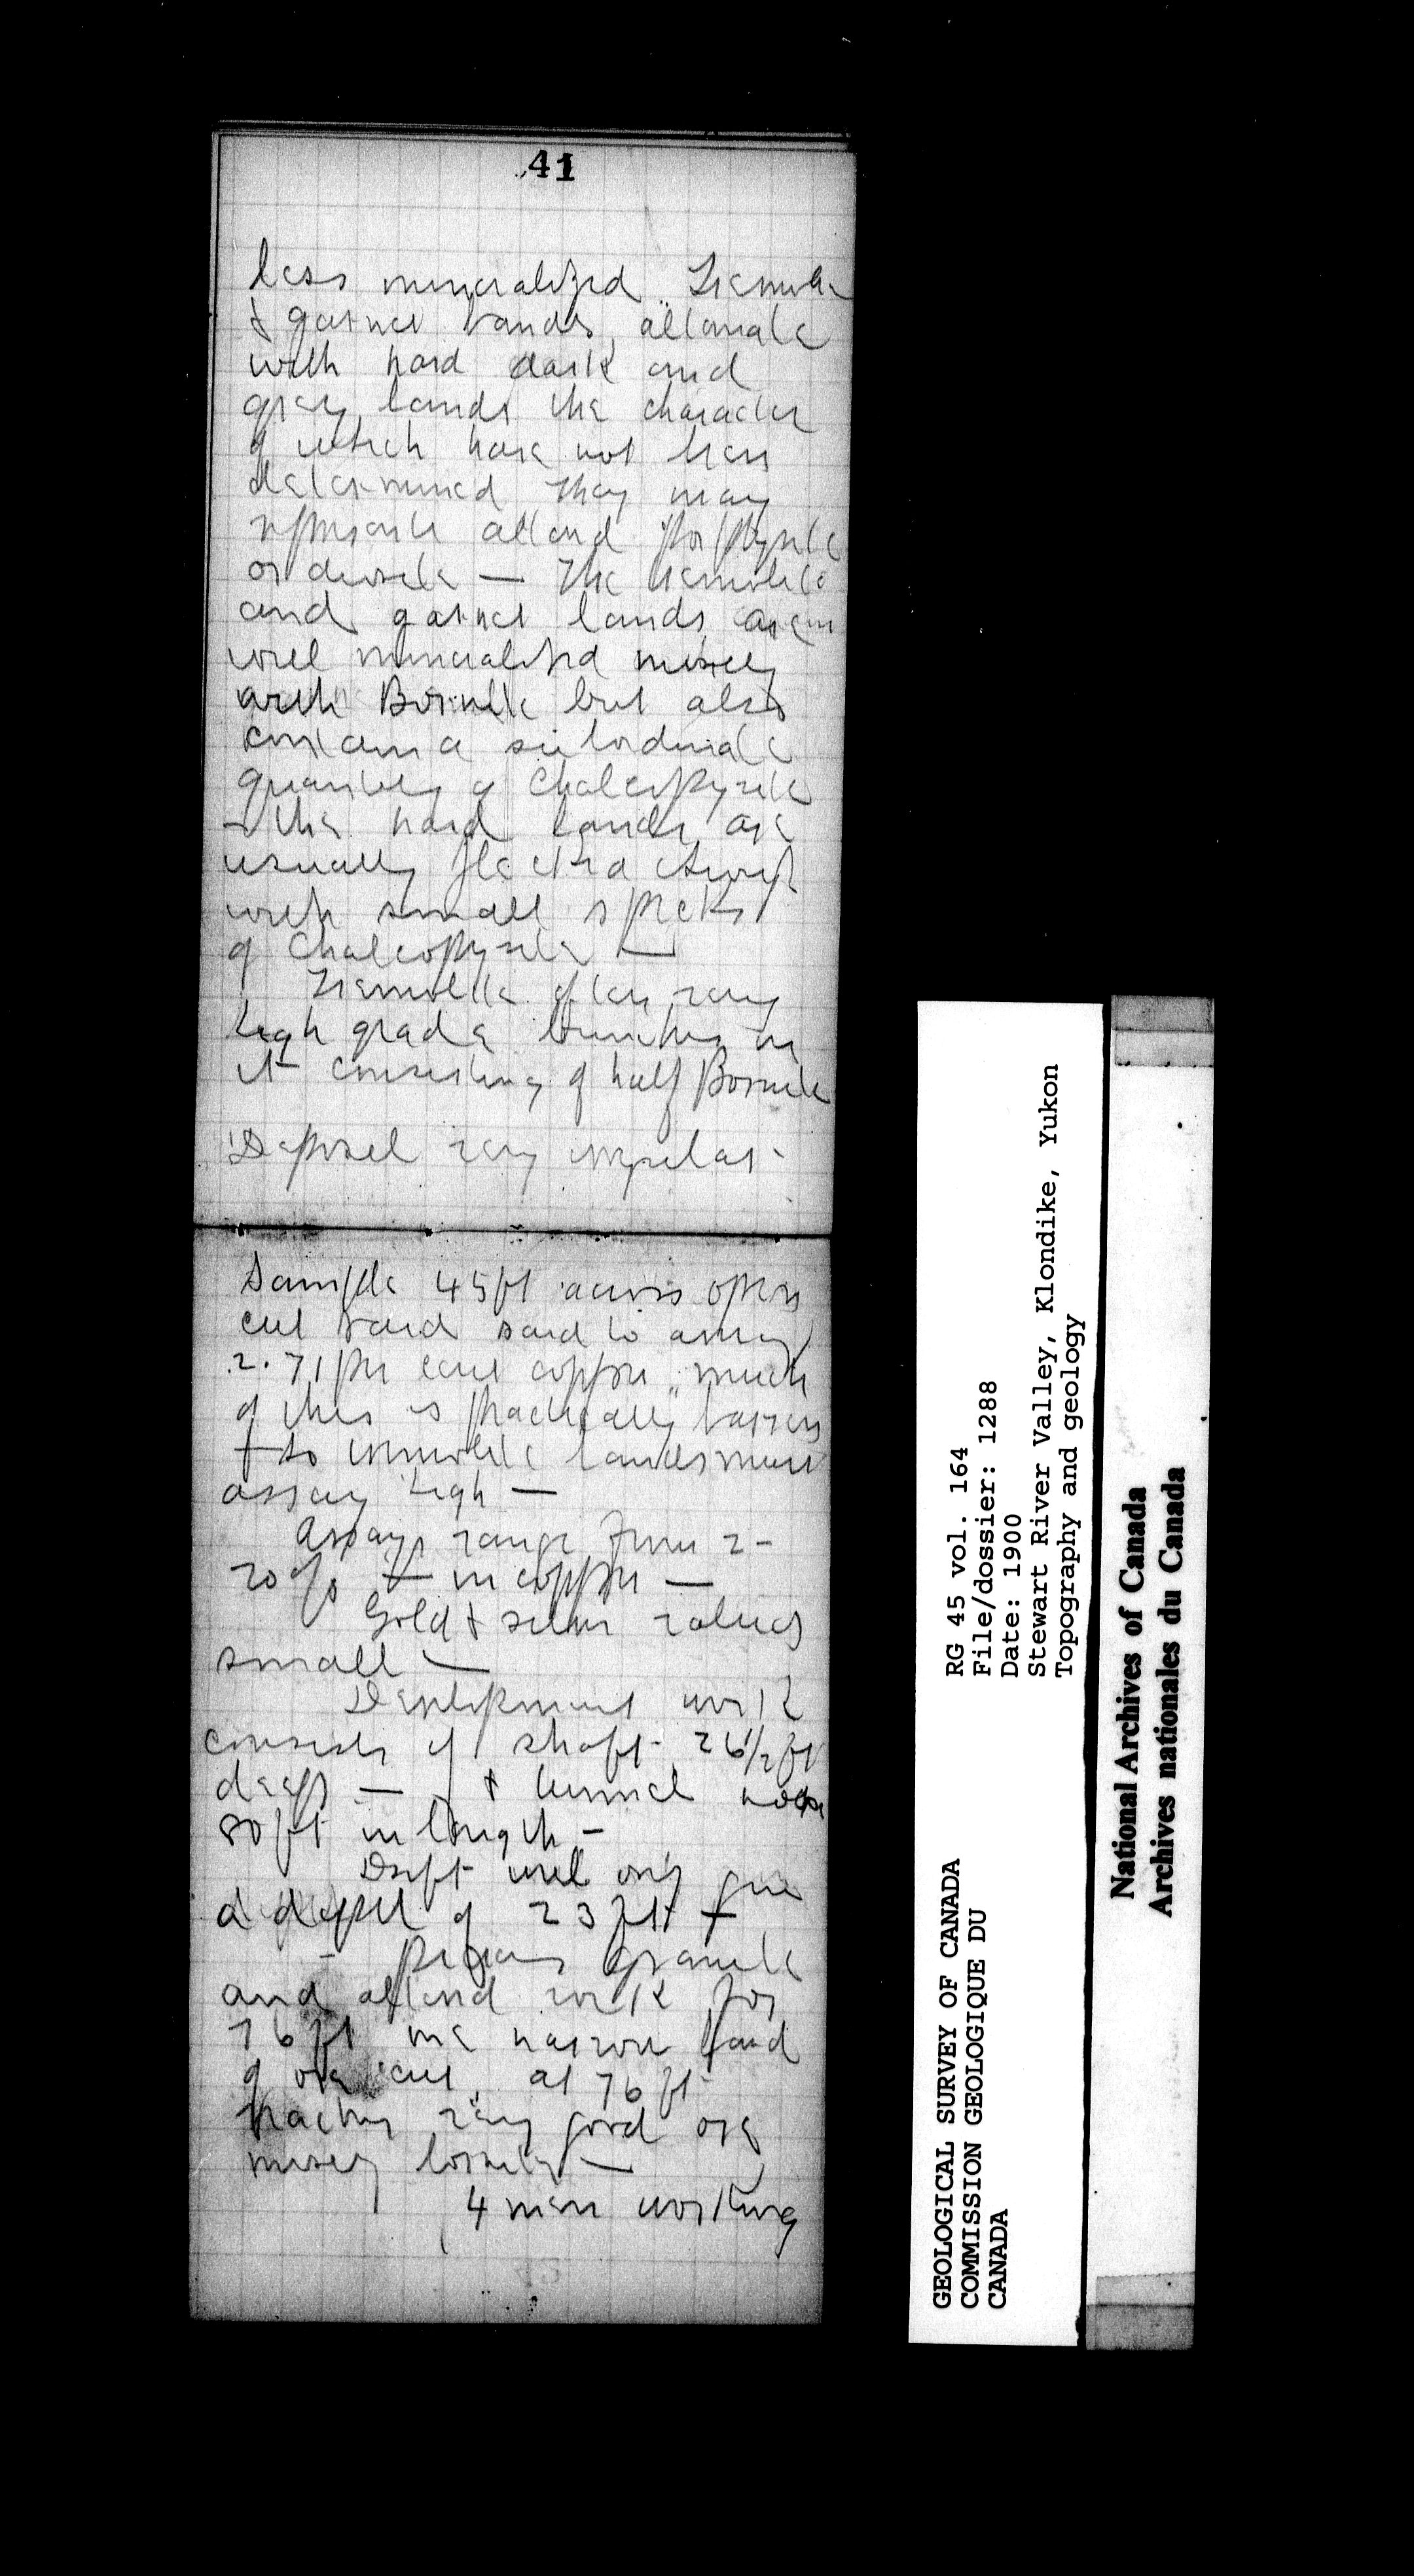 41
less mineralized Tremolite
& garnet bands alternate
with hard dark and
grey bands the character
of which have not been
determined They may
represent altered porphyrite
or diorite — The tremolite
and garnet bands are
well mineralized mostly
with Bornite but also
contain a subordinate
quantity of Chalcopyrite
– the hard bands are
usually flecked through
with small specks
of Chalcopyrite —
Tremolite often very
high grade bunches in
it consisting of half Bornite
Deposit very irregular
Sample 45 ft across open
cut band said to assay
2.71 per cent copper much
of this is practically barren
+ so tremolite bands must
assay high —
Assays range from 2–
20 % + in copper —
Gold & silver values
small —
Development work
consists of shaft 26 1/2 ft
deep — & tunnel now
80 ft in length –
Drift will only give
a depth of 23 ft +
– granite
and altered rock for
76 ft one narrow band
of ore cut at 76 ft
very good ore
mostly bornite —
4 men working
RG 45 vol. 164
File/dossier: 1288
Date: 1900
Stewart River Valley, Klondike, Yukon
Topography and geology
GEOLOGICAL SURVEY OF CANADA
COMMISSION GEOLOGIQUE DU
CANADA
National Archives of Canada
Archives nationales du Canada